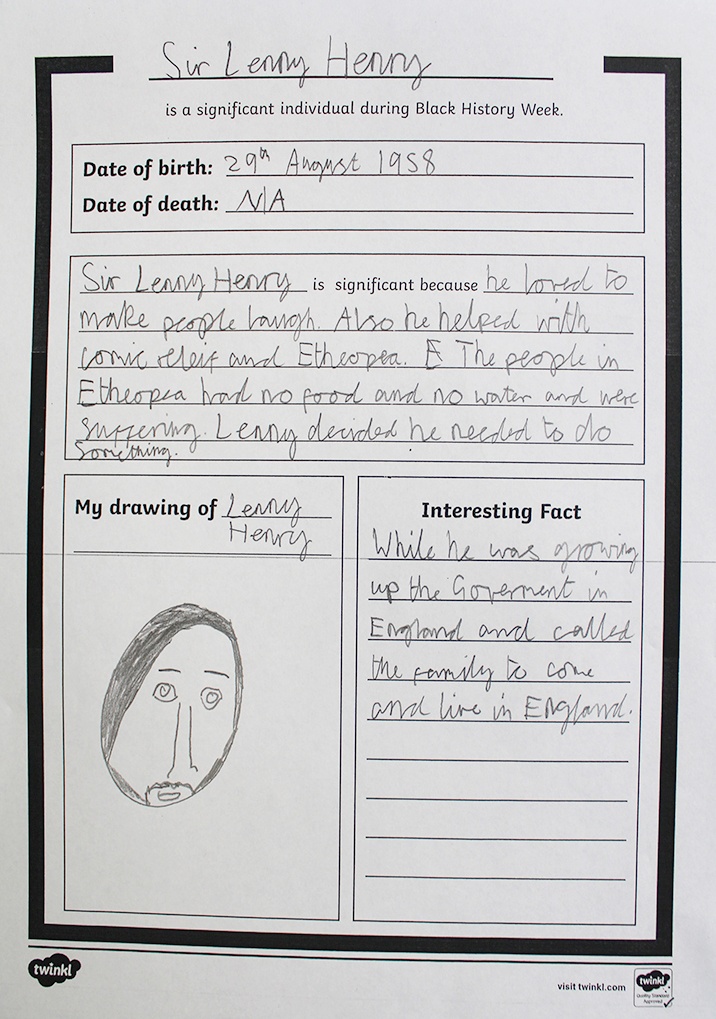 Sir Lenny Henry
is a significant individual during Black History Week.
Date of birth: 29th August 1958
Date of death: N/A
Sir Lenny Henry is significant because he loved to
make people laugh. Also he helped with
comic releif and Etheopea. E The people in
Etheopea had no food and no water and were
suffering. Lenny decided he needed to do
something.
My drawing of Lenny
Henry
Interesting Fact
While he was growing
up the Goverment in
England and called
the family to come
and live in England.
twinkl
visit twinkl.com
twinkl
Quality Standard
Approved